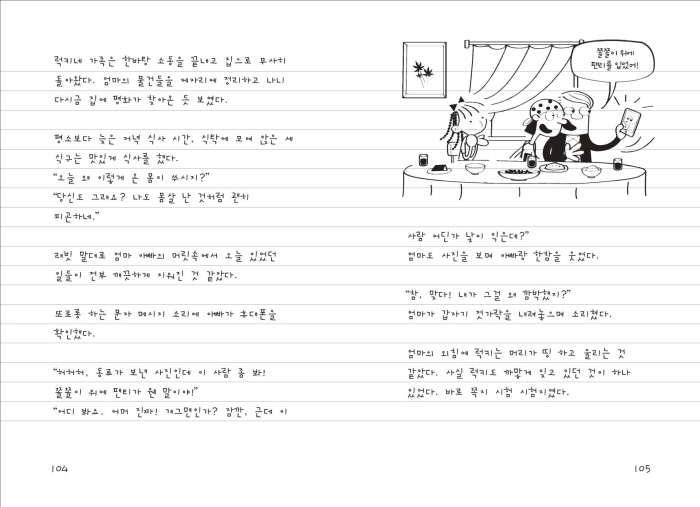 럭키네 가족은 한바탕 소동을 끝내고 집으로 무사히
돌아왔다. 엄마의 물건들을 제자리에 정리하고 나니
다시금 집에 평화가 찾아온 듯 보였다.
평소보다 늦은 저녁 식사 시간, 식탁에 모여 앉은 세
식구는 맛있게 식사를 했다.
“오늘 왜 이렇게 온 몸이 쑤시지?”
“당신도 그래요? 나도 몸살 난 것처럼 괜히
피곤하네.”
래빗 말대로 엄마 아빠의 머릿속에서 오늘 있었던
일들이 전부 깨끗하게 지워진 것 같았다.
또로롱 하는 문자 메시지 소리에 아빠가 휴대폰을
확인했다.
“허허허, 동료가 보낸 사진인데 이 사람 좀 봐!
쫄쫄이 위에 팬티가 웬 말이야!”
“어디 봐요. 어머 진짜! 개그맨인가? 잠깐, 근데 이
104
쫄쫄이 위에
팬티를 입었어!
사람 어딘가 낯이 익은데?”
엄마도 사진을 보며 아빠랑 한참을 웃었다.
“참, 맞다! 내가 그걸 왜 깜박했지?”
엄마가 갑자기 젓가락을 내려놓으며 소리쳤다.
엄마의 외침에 럭키는 머리가 띵 하고 울리는 것
같았다. 사실 럭키도 까맣게 잊고 있던 것이 하나
있었다. 바로 쪽지 시험 시험지였다.
105